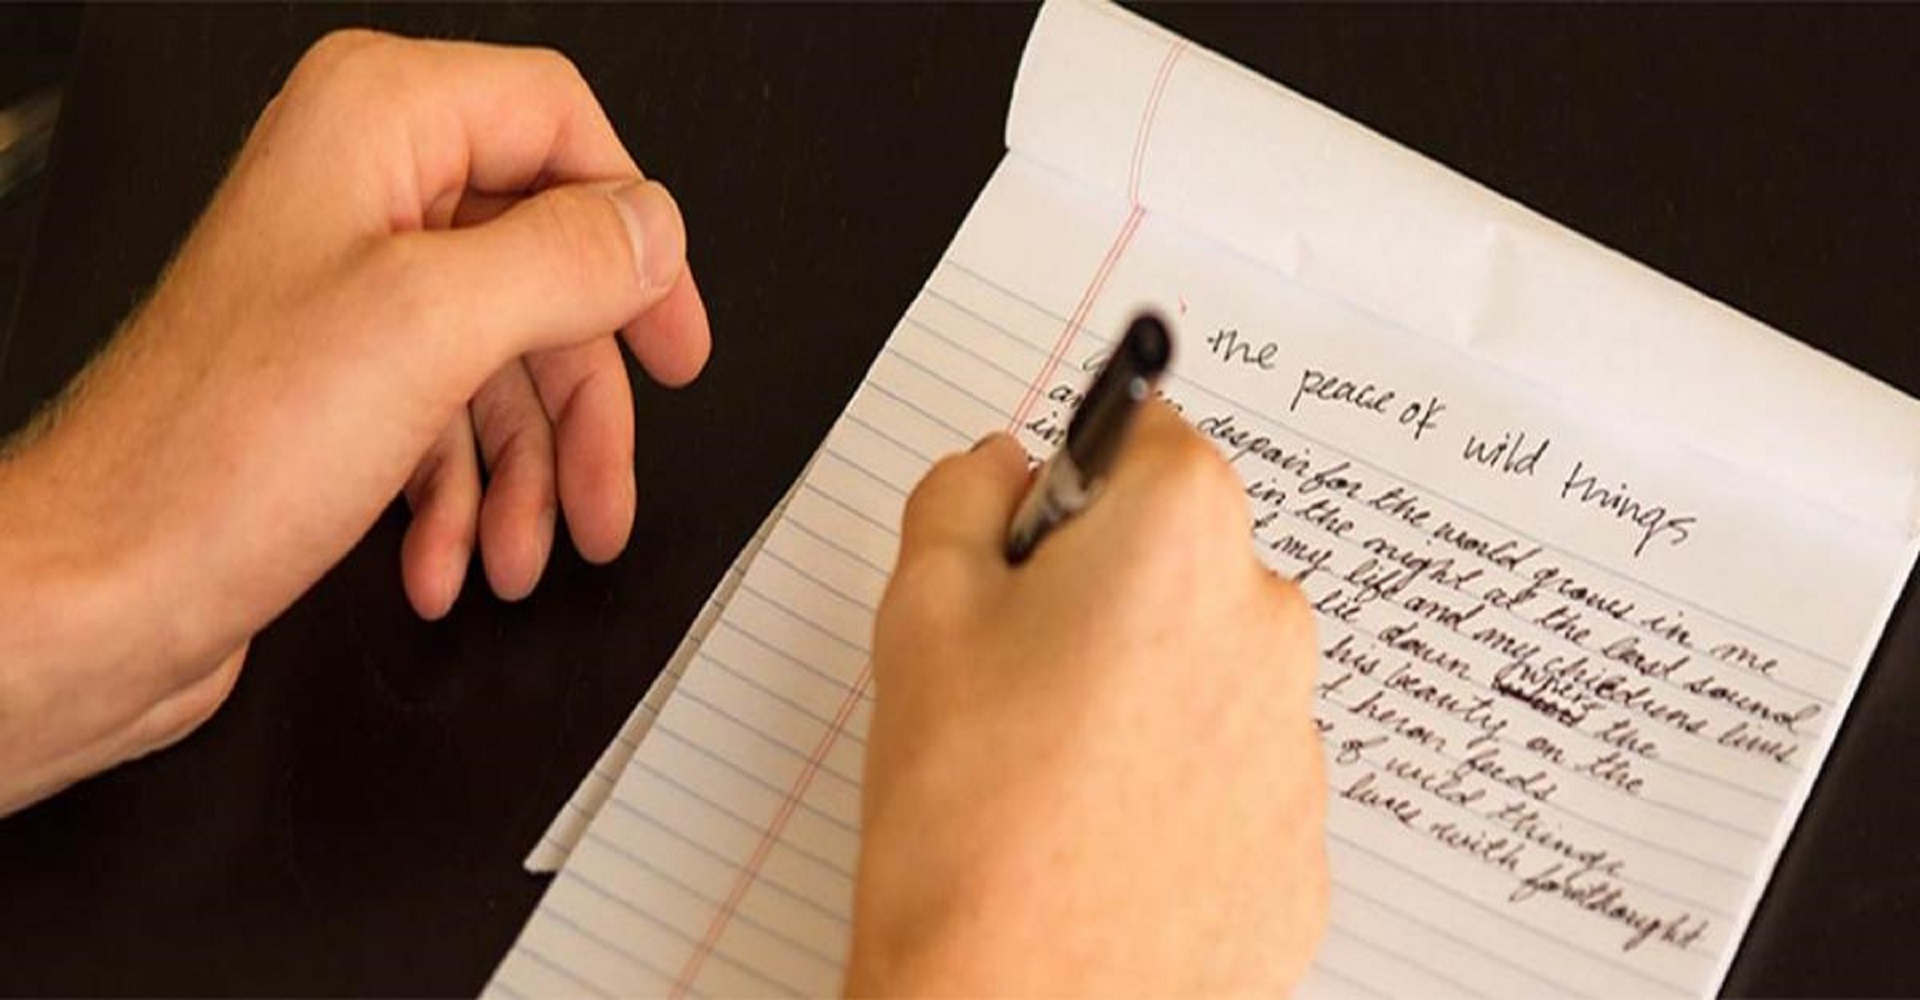 the peace of wild things
despair for the world grows in me
in the night at the least sound
in my life and my childrens lives
lie down where the
his beauty on the
heron feeds
of wild things
lives with forethought